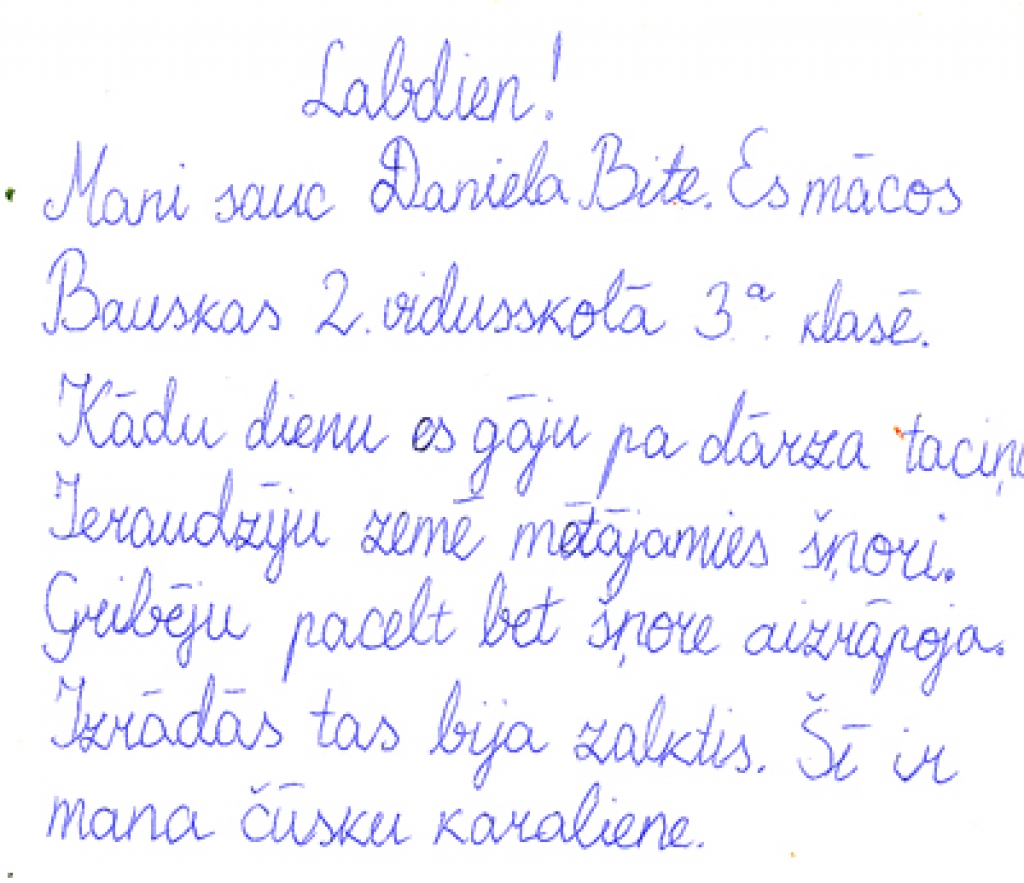 Labdien!
Mani sauc Daniela Bite. Es mācos
Bauskas 2. vidusskolā 3.a klasē.
Kādu dienu es gāju pa dārza taciņ
Ieraudzīju zemē mētājamies šņori.
Gribēju pacelt bet šņore aizrāpoja.
Izrādās tas bija zalktis. Šī ir
mana čūsku karaliene.